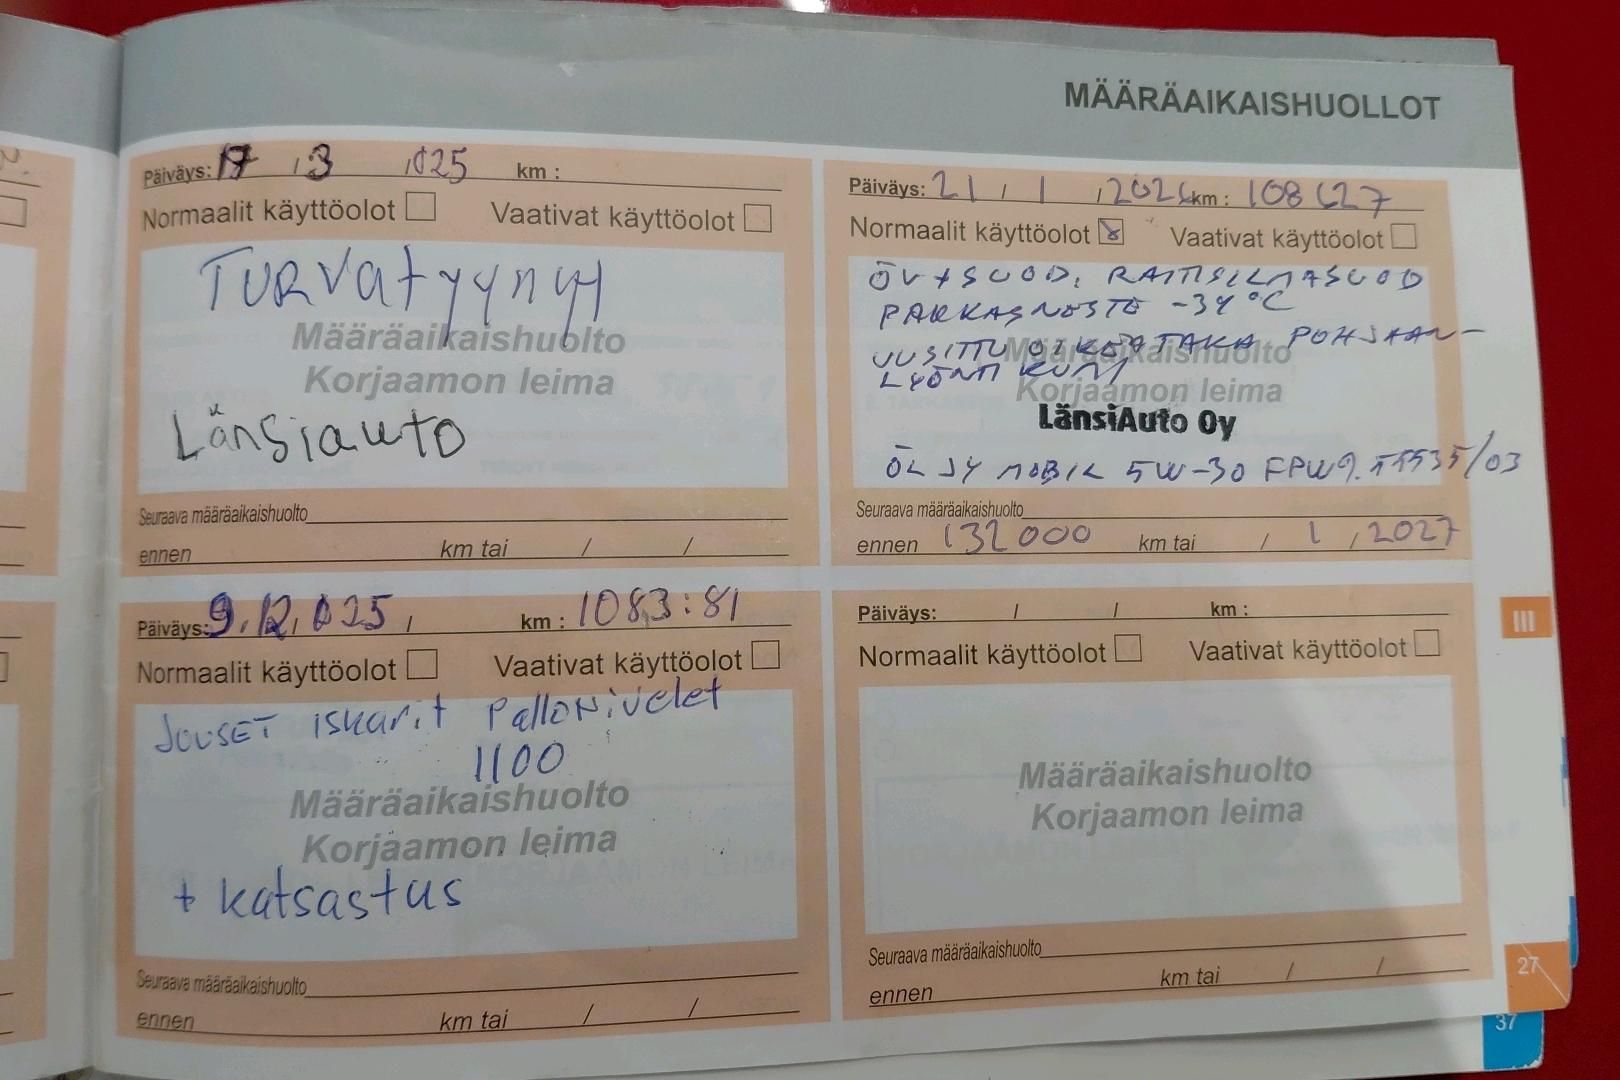 MÄÄRÄAIKAISHUOLLOT
Päiväys: 17 / 3 / 025 km :
Normaalit käyttöolot Vaativat käyttöolot
TURVAtyynyt
Määräaikaishuolto
Korjaamon leima
Länsiauto
Seuraava määräaikaishuolto
ennen km tai / /
Päiväys: 9.12.025 / km : 1083:81
Normaalit käyttöolot Vaativat käyttöolot
JOUSET iskarit PalloNivelet
1100
Määräaikaishuolto
Korjaamon leima
+ katsastus
Seuraava määräaikaishuolto
ennen km tai / /
Päiväys: 21 / 1 / 2026 km : 108627
Normaalit käyttöolot Vaativat käyttöolot
ÖV+SUOD. RAITISILMASUOD
PAKKASNESTE -34°C
UUSITTU OIKEA TAKA POHJAAN-
LYÖNTI KUMI
Määräaikaishuolto
Korjaamon leima
LänsiAuto Oy
ÖLJY MOBIL 5W-30
Seuraava määräaikaishuolto
ennen 132000 km tai / 1 / 2027
Päiväys: / / km :
Normaalit käyttöolot Vaativat käyttöolot
Määräaikaishuolto
Korjaamon leima
Seuraava määräaikaishuolto
ennen km tai / /
III
27
37